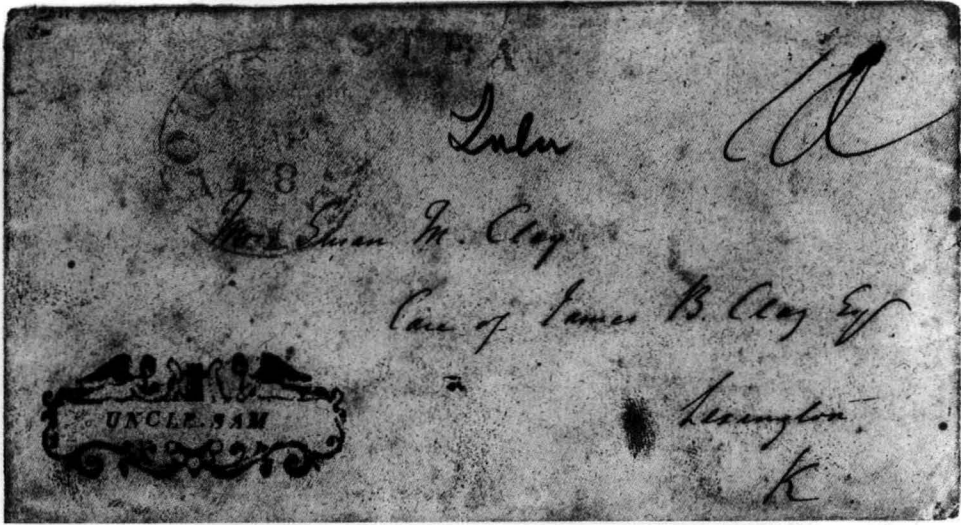 Lulu
10
8
Mrs Susan M. Clay.
Care of James B. Clay Esqr
Lexington
K
UNCLE SAM